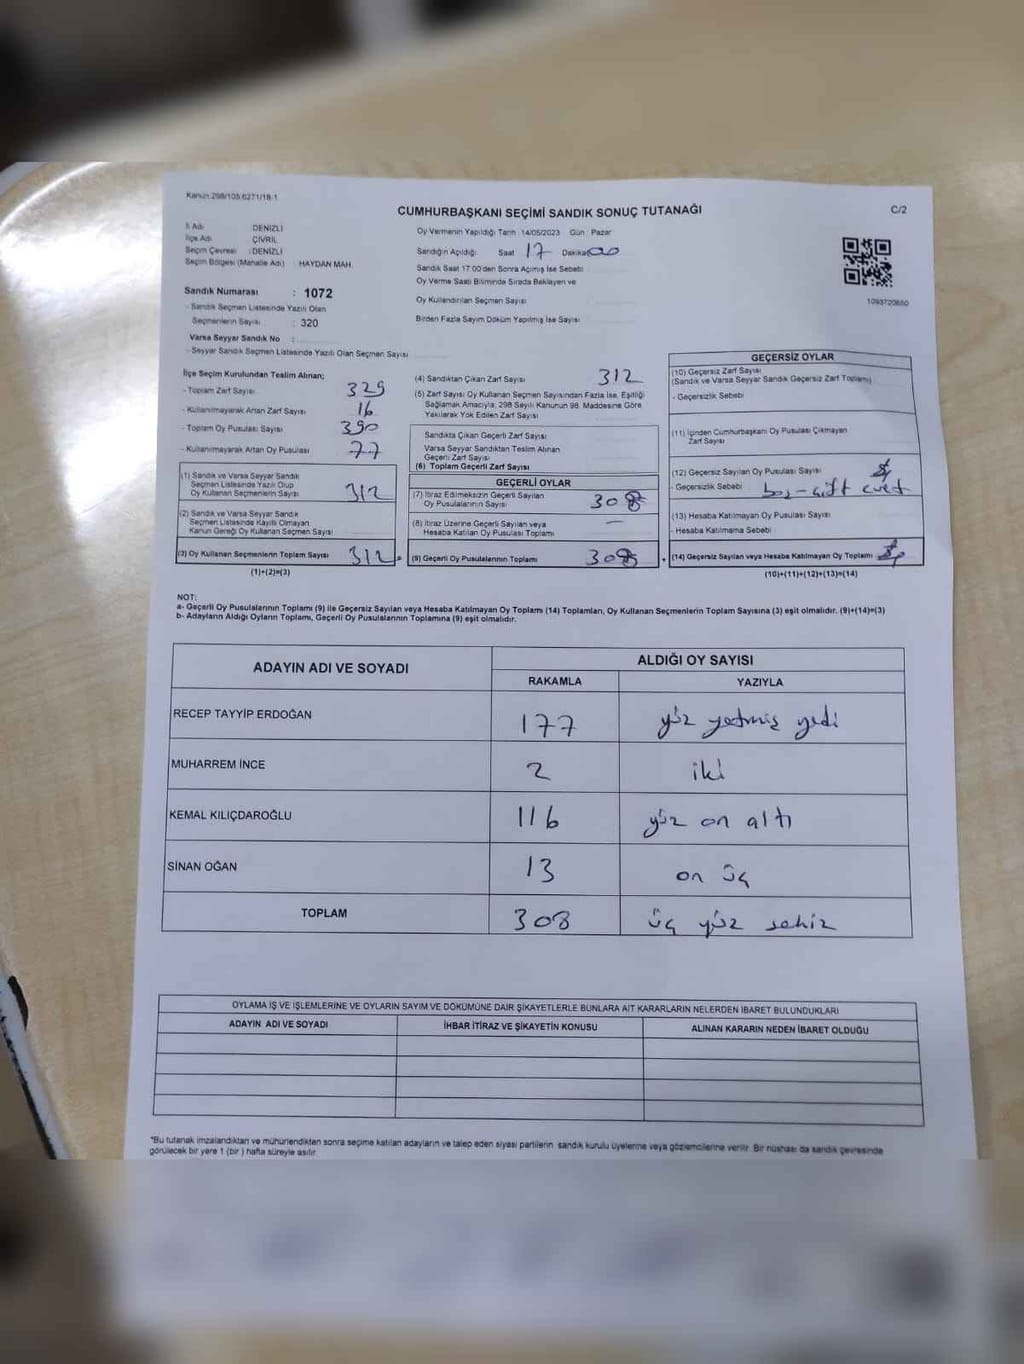 Kanun:298/105,6271/18-1
CUMHURBAŞKANI SEÇİMİ SANDIK SONUÇ TUTANAĞI
C/2
İl Adı DENİZLİ
İlçe Adı ÇİVRİL
Seçim Çevresi : DENİZLİ
Seçim Bölgesi (Mahalle Adı) HAYDAN MAH.
Sandık Numarası : 1072
- Sandık Seçmen Listesinde Yazılı Olan
Seçmenlerin Sayısı : 320
Varsa Seyyar Sandık No :
- Seyyar Sandık Seçmen Listesinde Yazılı Olan Seçmen Sayısı
Oy Vermenin Yapıldığı Tarih 14/05/2023 Gün Pazar
Sandığın Açıldığı Saat 17 Dakika 00
Sandık Saat 17:00'den Sonra Açılmış İse Sebebi
Oy Verme Saati Bitiminde Sırada Bekleyen ve
Oy Kullandırılan Seçmen Sayısı
Birden Fazla Sayım Döküm Yapılmış İse Sayısı
1093720650
İlçe Seçim Kurulundan Teslim Alınan;
- Toplam Zarf Sayısı 329
- Kullanılmayarak Artan Zarf Sayısı 16
- Toplam Oy Pusulası Sayısı 390
- Kullanılmayarak Artan Oy Pusulası 77
(1) Sandık ve Varsa Seyyar Sandık
Seçmen Listesinde Yazılı Olup
Oy Kullanan Seçmenlerin Sayısı 312
(2) Sandık ve Varsa Seyyar Sandık
Seçmen Listesinde Kayıtlı Olmayan
Kanun Gereği Oy Kullanan Seçmen Sayısı
(3) Oy Kullanan Seçmenlerin Toplam Sayısı 312 =
(1)+(2)=(3)
(4) Sandıktan Çıkan Zarf Sayısı 312
(5) Zarf Sayısı Oy Kullanan Seçmen Sayısından Fazla İse, Eşitliği
Sağlamak Amacıyla, 298 Sayılı Kanunun 98. Maddesine Göre
Yakılarak Yok Edilen Zarf Sayısı
Sandıkta Çıkan Geçerli Zarf Sayısı
Varsa Seyyar Sandıktan Teslim Alınan
Geçerli Zarf Sayısı
(6) Toplam Geçerli Zarf Sayısı
GEÇERLİ OYLAR
(7) İtiraz Edilmeksizin Geçerli Sayılan
Oy Pusulalarının Sayısı 308
(8) İtiraz Üzerine Geçerli Sayılan veya
Hesaba Katılan Oy Pusulası Toplamı —
(9) Geçerli Oy Pusulalarının Toplamı 308 +
GEÇERSİZ OYLAR
(10) Geçersiz Zarf Sayısı
(Sandık ve Varsa Seyyar Sandık Geçersiz Zarf Toplamı)
- Geçersizlik Sebebi
(11) İçinden Cumhurbaşkanı Oy Pusulası Çıkmayan
Zarf Sayısı
(12) Geçersiz Sayılan Oy Pusulası Sayısı
- Geçersizlik Sebebi boş-çift evet
(13) Hesaba Katılmayan Oy Pusulası Sayısı
- Hesaba Katılmama Sebebi
(14) Geçersiz Sayılan veya Hesaba Katılmayan Oy Toplamı
(10)+(11)+(12)+(13)=(14)
NOT:
a- Geçerli Oy Pusulalarının Toplamı (9) ile Geçersiz Sayılan veya Hesaba Katılmayan Oy Toplamı (14) Toplamları, Oy Kullanan Seçmenlerin Toplam Sayısına (3) eşit olmalıdır. (9)+(14)=(3)
b- Adayların Aldığı Oyların Toplamı, Geçerli Oy Pusulalarının Toplamına (9) eşit olmalıdır.
ADAYIN ADI VE SOYADI
ALDIĞI OY SAYISI
RAKAMLA YAZIYLA
RECEP TAYYİP ERDOĞAN 177 yüz yetmiş yedi
MUHARREM İNCE 2 iki
KEMAL KILIÇDAROĞLU 116 yüz on altı
SİNAN OĞAN 13 on üç
TOPLAM 308 üç yüz sekiz
OYLAMA İŞ VE İŞLEMLERİNE VE OYLARIN SAYIM VE DÖKÜMÜNE DAİR ŞİKAYETLERLE BUNLARA AİT KARARLARIN NELERDEN İBARET BULUNDUKLARI
ADAYIN ADI VE SOYADI İHBAR İTİRAZ VE ŞİKAYETİN KONUSU ALINAN KARARIN NEDEN İBARET OLDUĞU
*Bu tutanak imzalandıktan ve mühürlendikten sonra seçime katılan adayların ve talep eden siyasi partilerin sandık kurulu üyelerine veya gözlemcilerine verilir. Bir nüshası da sandık çevresinde
görülecek bir yere 1 (bir ) hafta süreyle asılır.